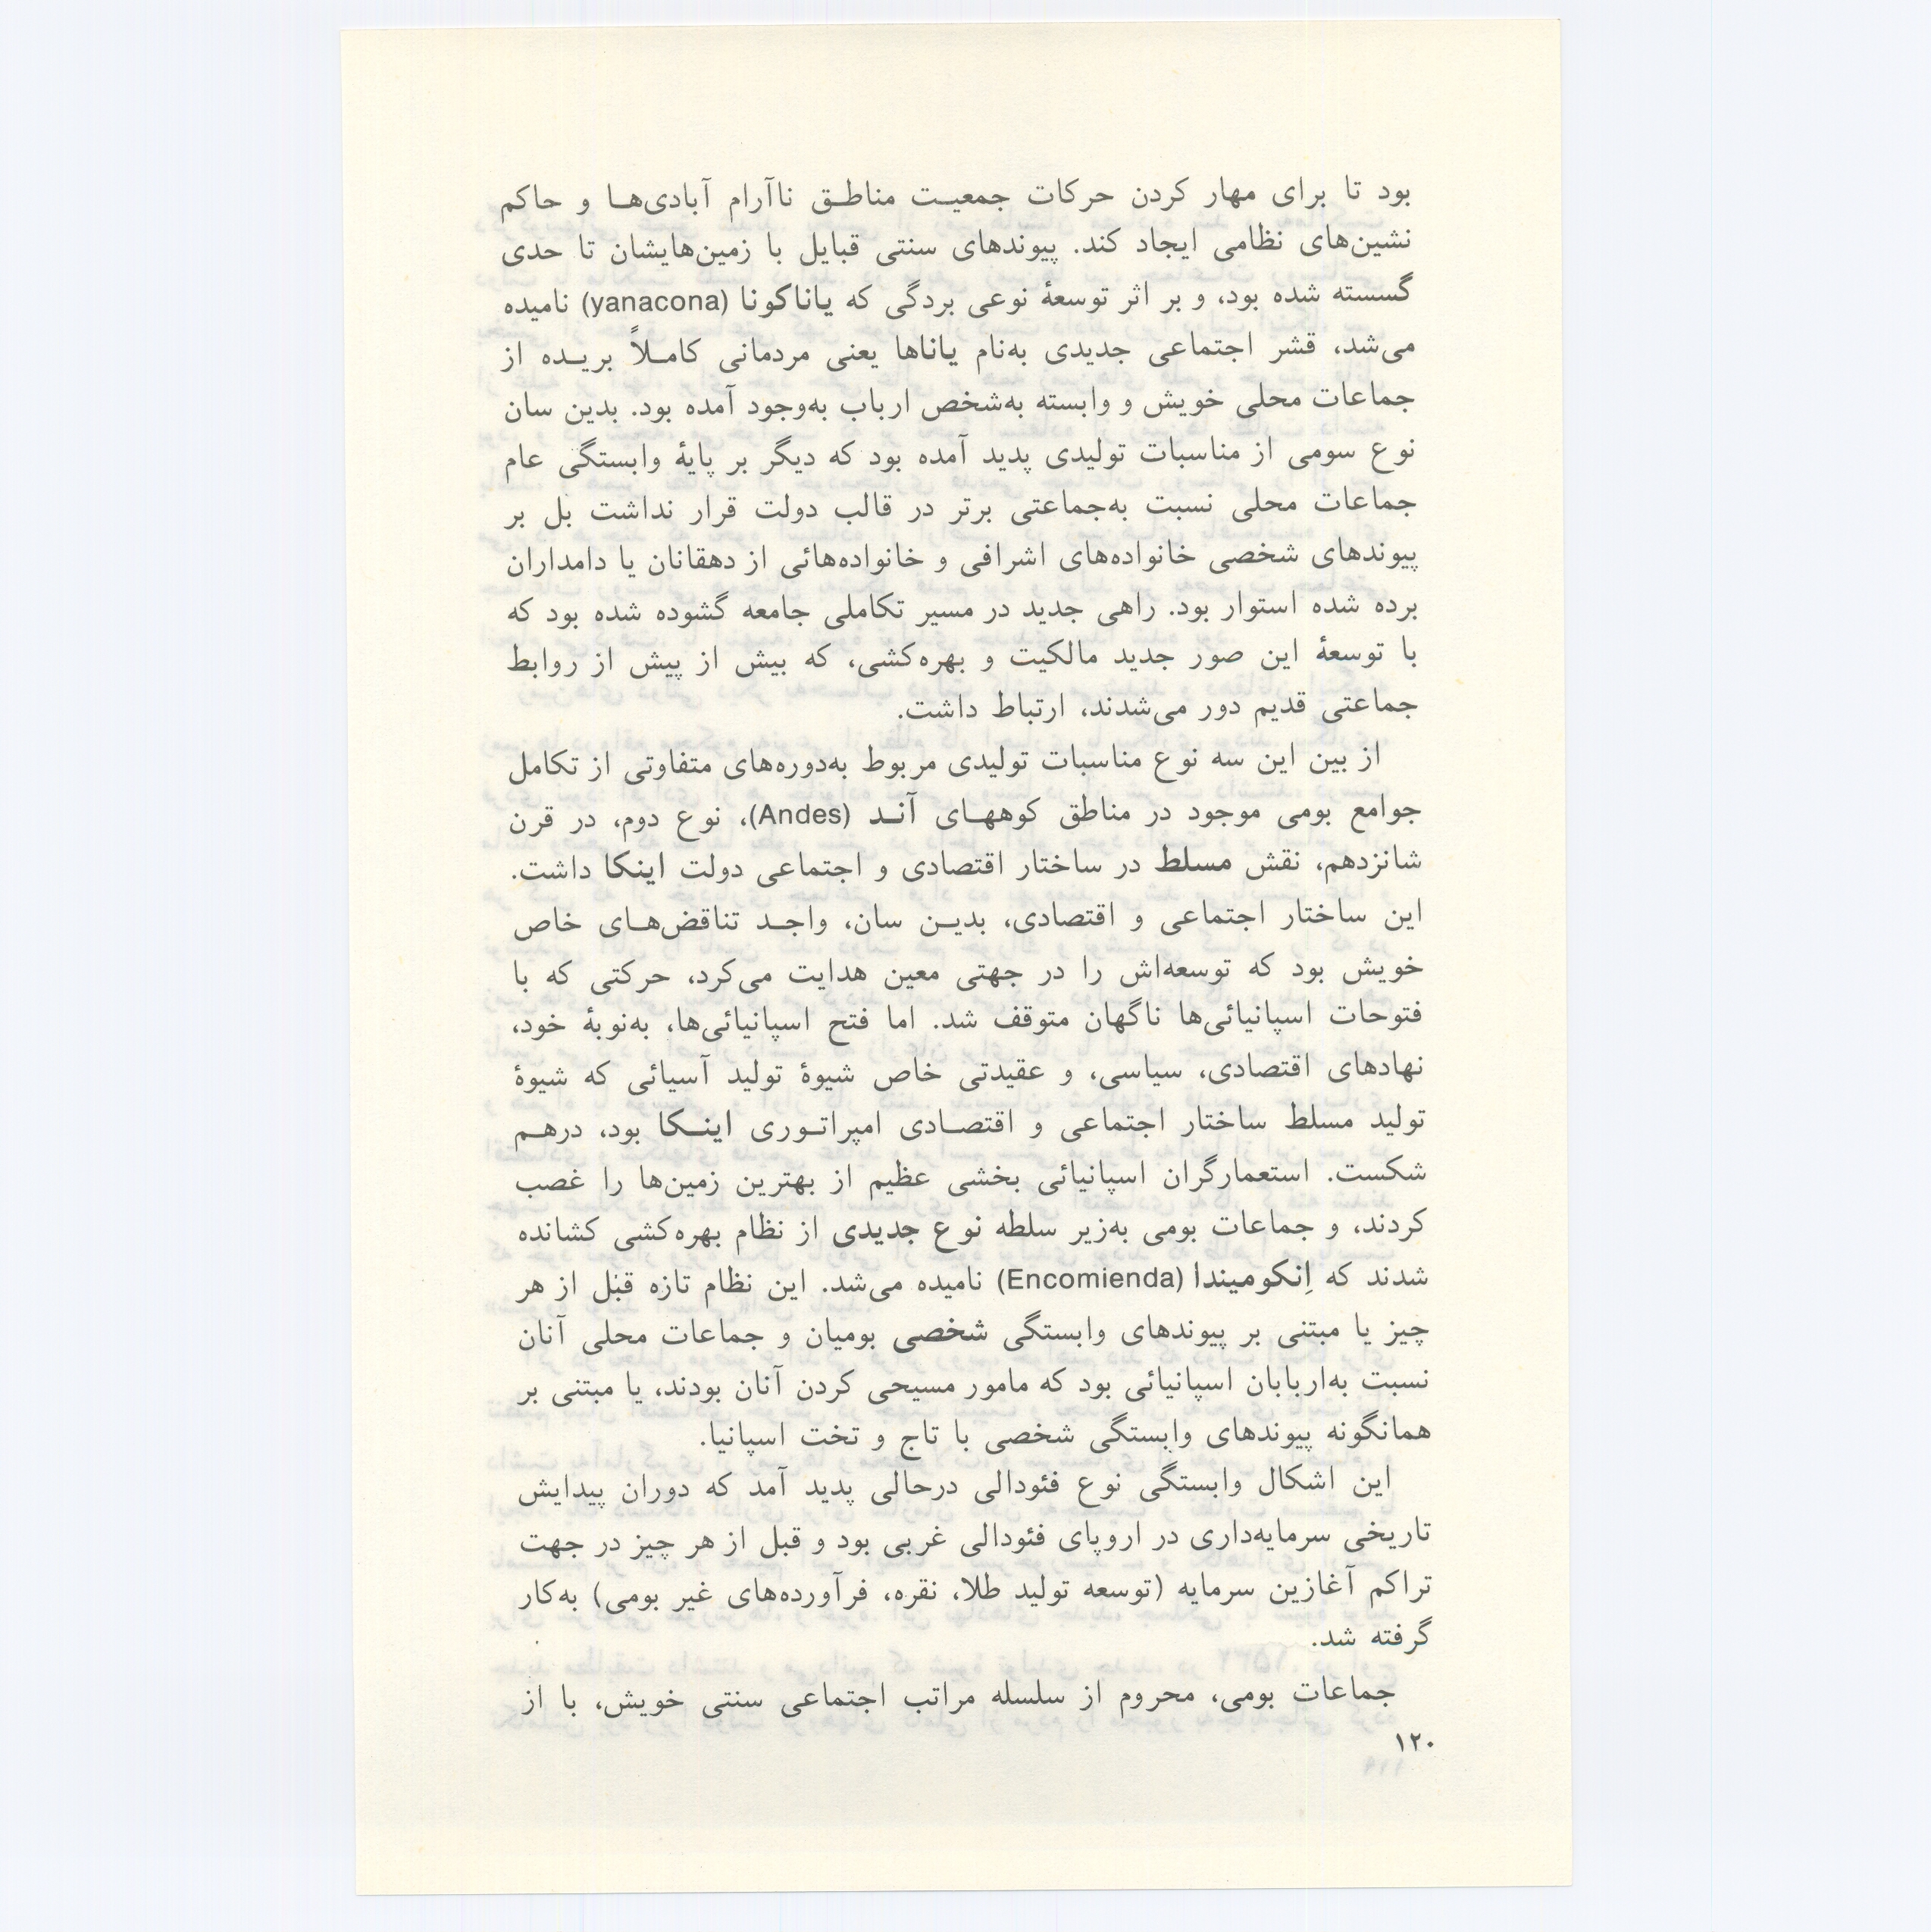 بود تا برای مهار کردن حرکات جمعیت مناطق ناآرام آبادی‌ها و حاکم
نشین‌های نظامی ایجاد کند. پیوندهای سنتی قبایل با زمین‌هایشان تا حدی
گسسته شده بود، و بر اثر توسعۀ نوعی بردگی که یاناکونا (yanacona) نامیده
می‌شد، قشر اجتماعی جدیدی به‌نام یاناها یعنی مردمانی کاملاً بریده از
جماعات محلی خویش و وابسته به‌شخص ارباب به‌وجود آمده بود. بدین سان
نوع سومی از مناسبات تولیدی پدید آمده بود که دیگر بر پایۀ وابستگی عام
جماعات محلی نسبت به‌جماعتی برتر در قالب دولت قرار نداشت بل بر
پیوندهای شخصی خانواده‌های اشرافی و خانواده‌هائی از دهقانان یا دامداران
برده شده استوار بود. راهی جدید در مسیر تکاملی جامعه گشوده شده بود که
با توسعۀ این صور جدید مالکیت و بهره‌کشی، که بیش از پیش از روابط
جماعتی قدیم دور می‌شدند، ارتباط داشت.
از بین این سه نوع مناسبات تولیدی مربوط به‌دوره‌های متفاوتی از تکامل
جوامع بومی موجود در مناطق کوههای آند (Andes)، نوع دوم، در قرن
شانزدهم، نقش مسلط در ساختار اقتصادی و اجتماعی دولت اینکا داشت.
این ساختار اجتماعی و اقتصادی، بدین سان، واجد تناقض‌های خاص
خویش بود که توسعه‌اش را در جهتی معین هدایت می‌کرد، حرکتی که با
فتوحات اسپانیائی‌ها ناگهان متوقف شد. اما فتح اسپانیائی‌ها، به‌نوبۀ خود،
نهادهای اقتصادی، سیاسی، و عقیدتی خاص شیوۀ تولید آسیائی که شیوۀ
تولید مسلط ساختار اجتماعی و اقتصادی امپراتوری اینکا بود، درهم
شکست. استعمارگران اسپانیائی بخشی عظیم از بهترین زمین‌ها را غصب
کردند، و جماعات بومی به‌زیر سلطه نوع جدیدی از نظام بهره‌کشی کشانده
شدند که اِنکومیندا (Encomienda) نامیده می‌شد. این نظام تازه قبل از هر
چیز یا مبتنی بر پیوندهای وابستگی شخصی بومیان و جماعات محلی آنان
نسبت به‌اربابان اسپانیائی بود که مامور مسیحی کردن آنان بودند، یا مبتنی بر
همانگونه پیوندهای وابستگی شخصی با تاج و تخت اسپانیا.
این اشکال وابستگی نوع فئودالی درحالی پدید آمد که دوران پیدایش
تاریخی سرمایه‌داری در اروپای فئودالی غربی بود و قبل از هر چیز در جهت
تراکم آغازین سرمایه (توسعه تولید طلا، نقره، فرآورده‌های غیر بومی) به‌کار
گرفته شد.
جماعات بومی، محروم از سلسله مراتب اجتماعی سنتی خویش، با از
۱۲۰